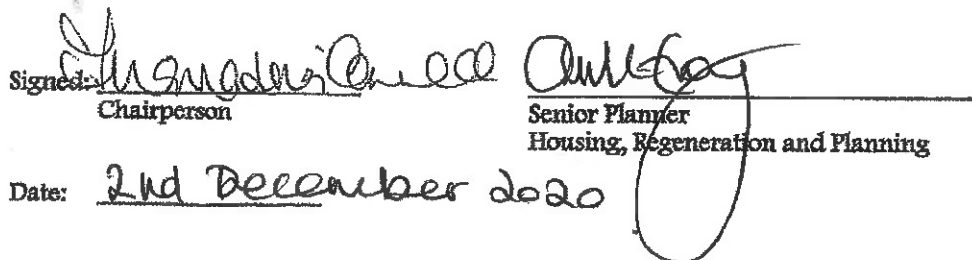 Signed:
Chairperson
Senior Planner
Housing, Regeneration and Planning
Date: 2nd December 2020